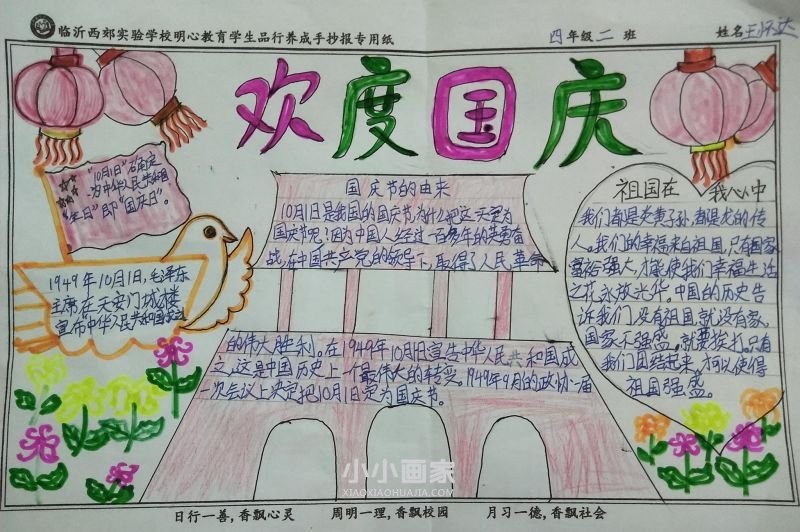 临沂西郊实验学校明心教育学生品行养成手抄报专用纸
四年级二班
姓名王怀达
欢度国庆
"10月1日"确定
为中华人民共和国
"生日"即"国庆日"。
1949年10月1日,毛泽东
主席在天安门城楼
宣布"中华人民共和国成立
国庆节的由来
10月1日是我国的国庆节,为什么把这一天定为
国庆节呢?因为中国人经过一百多年的英勇奋
战,在中国共产党的领导下,取得了人民革命
的伟大胜利。在1949年10月1日宣告中华人民共和国成
立,这是中国历史上一个最伟大的转变。1949年9月的政协一届
一次会议上决定把10月1定为国庆节。
祖国在我心中
我们都是炎黄子孙,都是龙的传
人。我们的幸福来自祖国,只有国家
富裕强大,才能使我们幸福生活
之花永放光华。中国的历史告
诉我们:没有祖国,就没有家。
国家不强盛。就要挨打。只有
我们团结起来,才可以使得
祖国强盛。
小小画家
XIAOXIAOHUAJIA.COM
日行一善,香飘心灵 周明一理,香飘校园 月习一德,香飘社会